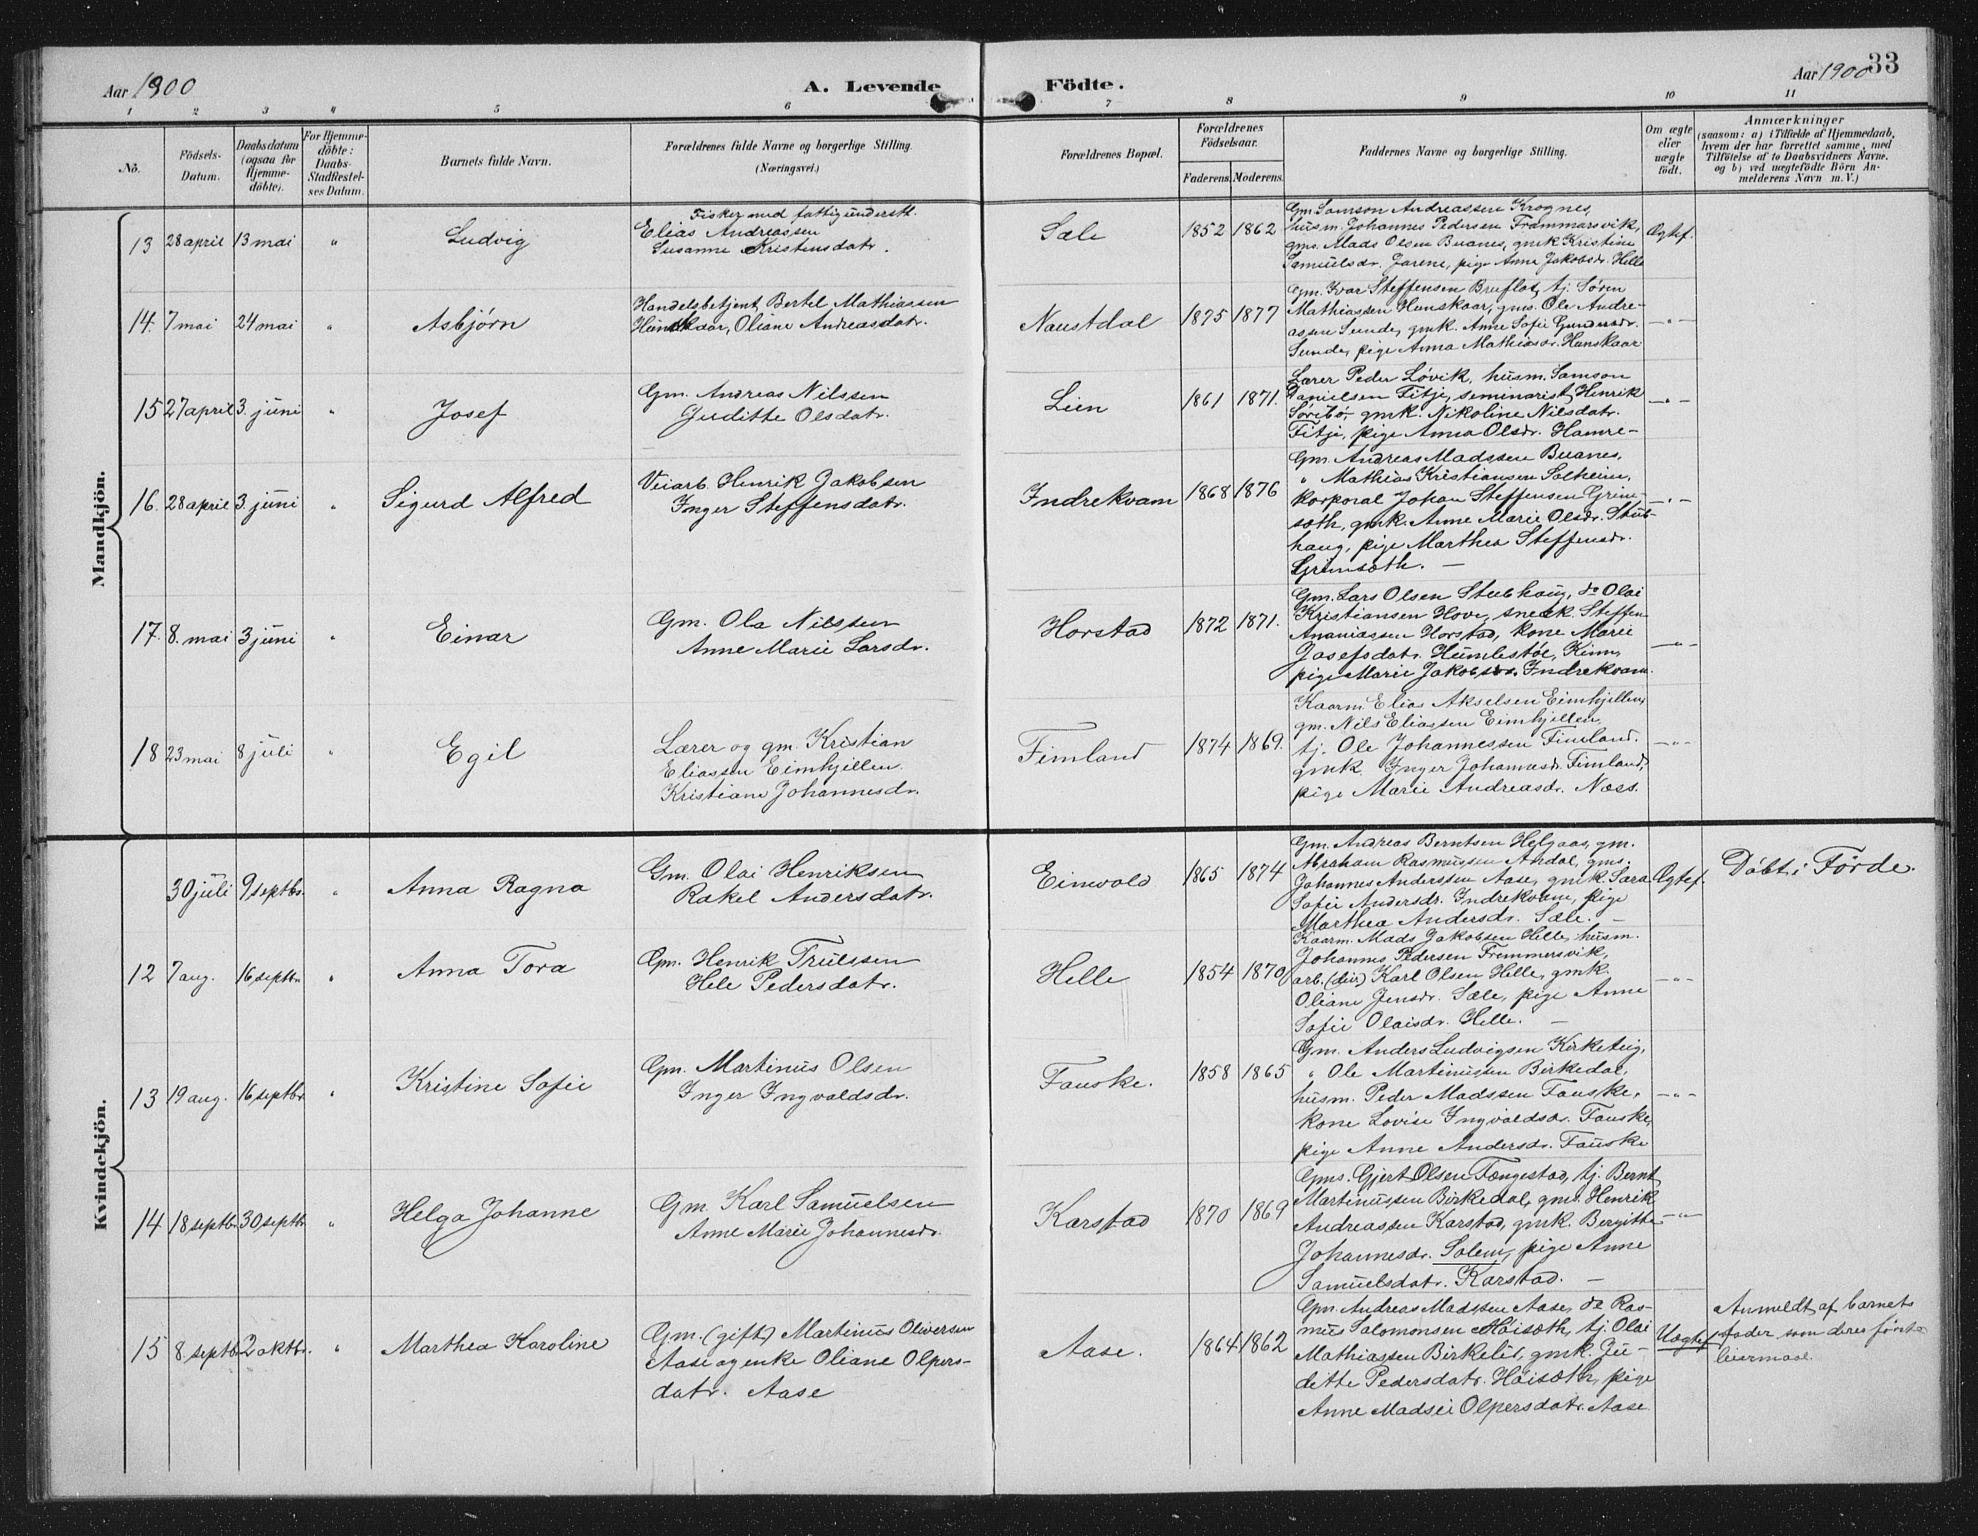 Aar 1900
A. Levende Födte.
Aar 1900 33
1 2 3 4 5 6 7 8 9 10 11
No.
Födsels-Datum.
Daabsdatum (ogsaa for Hjemme-döbte).
For Hjemme-döbte: Daabs-Stadfæstel-ses Datum.
Barnets fulde Navn.
Forældrenes fulde Navne og borgerlige Stilling.
(Næringsvei.)
Forældrenes Bopæl.
Forældrenes Födselsaar.
Faderens. Moderens.
Faddernes Navne og borgerlige Stilling.
Om ægte eller uægte födt.
Anmærkninger
(saasom: a) i Tilfælde af Hjemmedaab,
hvem der har forrettet samme, med
Tilföielse af to Daabsvidners Navne,
og b) ved uægtefödte Börn An-
melderens Navn m. V.)
Mandkjön.
13 28 april 13 mai " Ludvig
Fisker med fattigunderst.
Elias Andreassen
Susanne Kristensdatr.
Sæle 1852 1862
Gm. Samson Andreassen Krognes,
husm. Johannes Pedersen Frammarsvik,
gms. Mads Olsen Buanes, gmk Kristine
Samuelsdr. Jarene, pige Anne Jakobsdr. Helle
Ægtef.
14. 7 mai 24 mai " Asbjørn
Handelsbetjent Bertel Mathiassen
Hunskaar, Oliane Andreasdatr.
Naustdal 1875 1877
Gm. Ivar Steffensen Bruflot, tj. Søren
Mathiassen Hunskaar, gms. Ole Andre-
assen Sunde, gmk. Anne Sofie Gundersdr.
Sunde, pige Anna Mathiasdr. Hunskaar
—"—
15 27 april 3. juni " Josef
Gm. Andreas Nilssen
Juditte Olsdatr.
Lien 1861 1871.
Lærer Peder Løvik, husm. Samson
Danielsen Fitje, seminarist Henrik
Søribø, gmk. Nikoline Nilsdatr.
Fitje, pige Anna Olsdr. Hamre-
—"—
16. 28 april 3. juni " Sigurd Alfred
Veiarb. Henrik Jakobsen
Inger Steffensdatr.
Indrekvam 1868 1876
Gm. Andreas Madssen Buanes,
" Mathias Kristiansen Solheim,
korporal Johan Steffensen Grim-
sæth, gmk. Anne Marie Olsdr. Stub-
haug, pige Marthea Steffensdr.
Grimsæth. —
—"—
17. 8. mai 3 juni " Einar
Gm. Ola Nilssen
Anne Marie Larsdr.
Horstad 1872 1871.
Gm. Lars Olsen Stubhaug, do Olai
Kristiansen Hove, snedk. Steffen
Ananiassen Horstad, kone Marie
Josefsdatr. Humlestøl, Kinn,
pige Marie Jakobsdr. Indrekvam.
—"—
18 23 mai 8 juli " Egil
Lærer og gm. Kristian
Eliassen Eimhjellen.
Kristiane Johannesdr.
Fimland 1874 1869.
Kaarm. Elias Akselsen Eimhjellen,
gm. Nils Eliassen Eimhjellen,
tj. Ole Johannessen Fimland.
gmk. Inger Johannesdr. Fimland,
pige Marie Andreasdr. Næss.
—"—
Kvindekjön.
30 juli 9 septbr. " Anna Ragna
Gm. Olai Henriksen
Rakel Andersdatr.
Eimvold 1865 1874
Gm. Andreas Berntsen Helgaas, gm.
Abraham Rasmussen Ardal, gms.
Johannes Anderssen Aase, gmk. Sara
Sofie Andersdr. Indrekvam, pige
Marthea Andersdr. Sæle. —
Ægtef.
Döbt i Förde.
12 7 aug. 16 septbr. " Anna Tora
Gm. Henrik Trulssen
Hele Pedersdatr.
Helle 1854 1870
Kaarm. Mads Jakobsen Helle, husm.
Johannes Pedersen Fremmersvik,
arb. (dir) Karl Olsen Helle, gmk.
Oliane Jensdr. Sæle, pige Anne
Sofie Olaisdr. Helle. —
—"—
13 19 aug. 16 septbr. " Kristine Sofie
Gm. Martinus Olsen
Inger Ingvaldsdr.
Fauske. 1858 1865
Gm. Anders Ludvigsen Kirketeig,
" Ole Martinussen Birkedal,
husm. Peder Madssen Fauske,
kone Lovise Ingvaldsdr. Fauske,
pige Anne Andersdr. Fauske
—"—
14 18 septbr 30 septbr " Helga Johanne
Gm. Karl Samuelsen
Anne Marie Johannesdr.
Karstad 1870 1869
Gms. Gjert Olsen Fængestad, tj. Bernt
Martinussen Birkedal, gms. Henrik
Andreassen Karstad, gmk. Bergitte
Johannesdr. Solem, pige Anne
Samuelsdatr. Karstad. —
—"—
15 8. septbr. 2 oktbr. " Marthea Karoline
Gm. (gift) Martinus Oliversen
Aase og enke Oliane Olpers-
datr. Aase
Aase. 1864 1862
Gm. Andreas Madssen Aase, do Ras-
mus Salomonsen Höisæth, tj. Olai
Mathiassen Birkelid, gmk. Ju-
ditte Pedersdatr. Höisæth, pige
Anne Madsei Olpersdatr. Aase
Uægtef.
Anmeldt af barnets
fader som deres første
leiermaal.